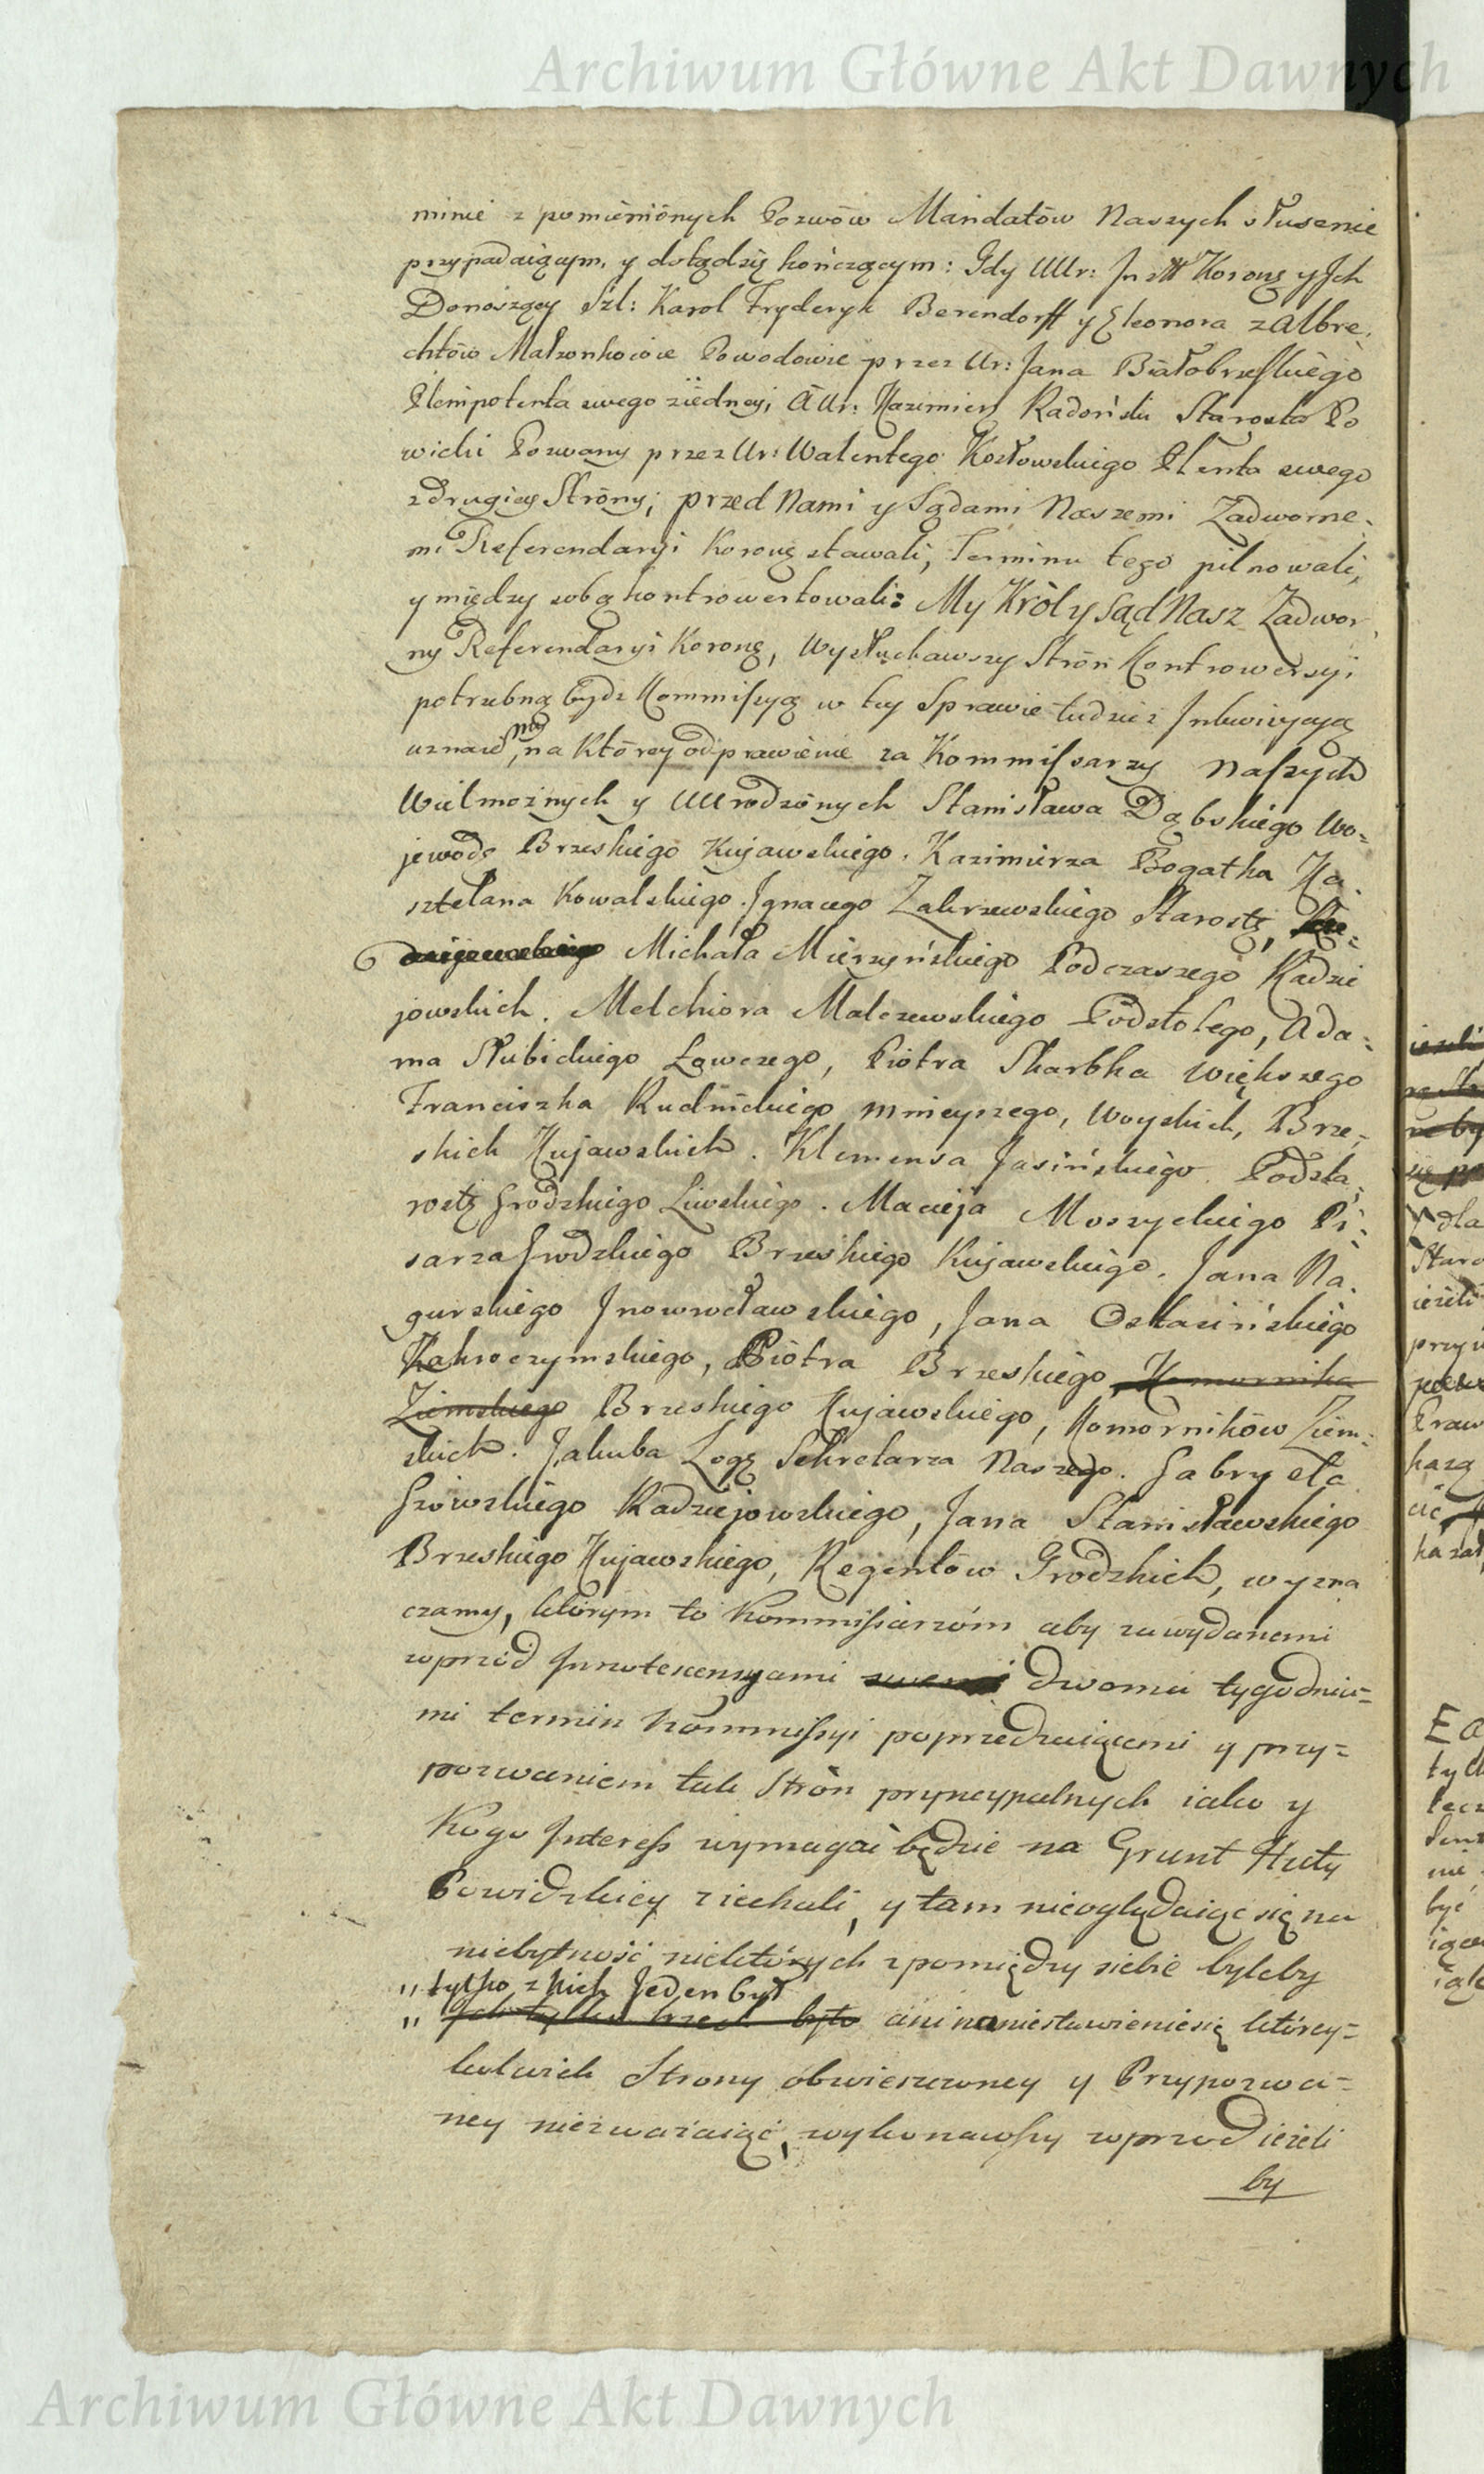 Archiwum Główne Akt Dawnych
minie z pomienionych Pozwów Mandatów Naszych słusznie
przypadaiącym, y dotądsię kończącym: Gdy UUr: Instt Koronę y Ich
Donoszący Szl: Karol Fryderyk Berendorff y Eleonora z Albre:
chtów Małzonkowie Powodowie przez Ur: Jana Białobrzeskiego
Plenipotenta swego ziedney, A Ur: Kazimierz Radoński Starosta Po
widzki Pozwany przez Ur: Walentego Kozłowskiego Plenta swego
z drugiey Strony; przed Nami y Sądami Naszemi Zadworne:
mi Referendaryi Koronę stawali, Terminu tego pilnowali,
y między sobą kontrowertowali: My Król y Sąd Nasz Zadwor:
ny Referendaryi Koronę, Wysłuchawszy Strón Kontrowersyi
potrzebną bydz Kommissyą w tey Sprawie tudzież Inkwizycyą
uznawszy, na którey odprawienie za Kommissarzy Naszych
Wielmożnych y UUrodzónych Stanisława Dąbskiego Wo=
jewodę Brzeskiego Kujawskiego. Kazimierza Bogatka Ka:
sztelana Kowalskiego. Ignacego Zakrzewskiego Starostę,
Michała Mierzyńskiego Podczaszego Radzie
jowskich. Melchiora Malczewskiego Podstolego, Ada:
ma Słubickiego Łowczego, Piotra Skarbka większego
Franciszka Rudnickiego mnieyszego, Woyskich, Brze:
skich Kujawskich. Klemensa Jasińskiego Podsta:
rostę Grodzkiego Liwskiego. Macieja Moszyckiego Pi:
sarza Grodzkiego Brzeskiego Kujawskiego. Jana Na:
gurskiego Inowrocławskiego, Jana Ostasińskiego
Zakroczymskiego, Piotra Brzeskiego Komornika
Ziemskiego Brzeskiego Kujawskiego, Komorników Ziem:
skich. Jakuba Logę Sekretarza Naszego. Gabryela
Radziejowskiego, Jana Stanisławskiego
Brzeskiego Kujawskiego, Regentów Grodzkich, wyzna
czamy, którym to Kommissarzóm aby za wydanemi
wprzód Innotescencyami dwoma tygodnia=
mi termin Kommissyi poprzedzaiącemi y przy=
pozwaniem tak Strón pryncypalnych iako y
Kogo Interess wymagać będzie na Grunt Huty
Powidzkiey ziechali, y tam nieoglądaiąc się na
niebytność niektórych z pomiędzy siebie byleby
" tylko z nich Jeden był
" ich tylko trzech było ani na niestawieniesię którey=
kolwiek Strony obwieszczoney y Przypozwa=
ney niezważaiąc, wykonawszy wprzód ieżeli
by
Archiwum Główne Akt Dawnych